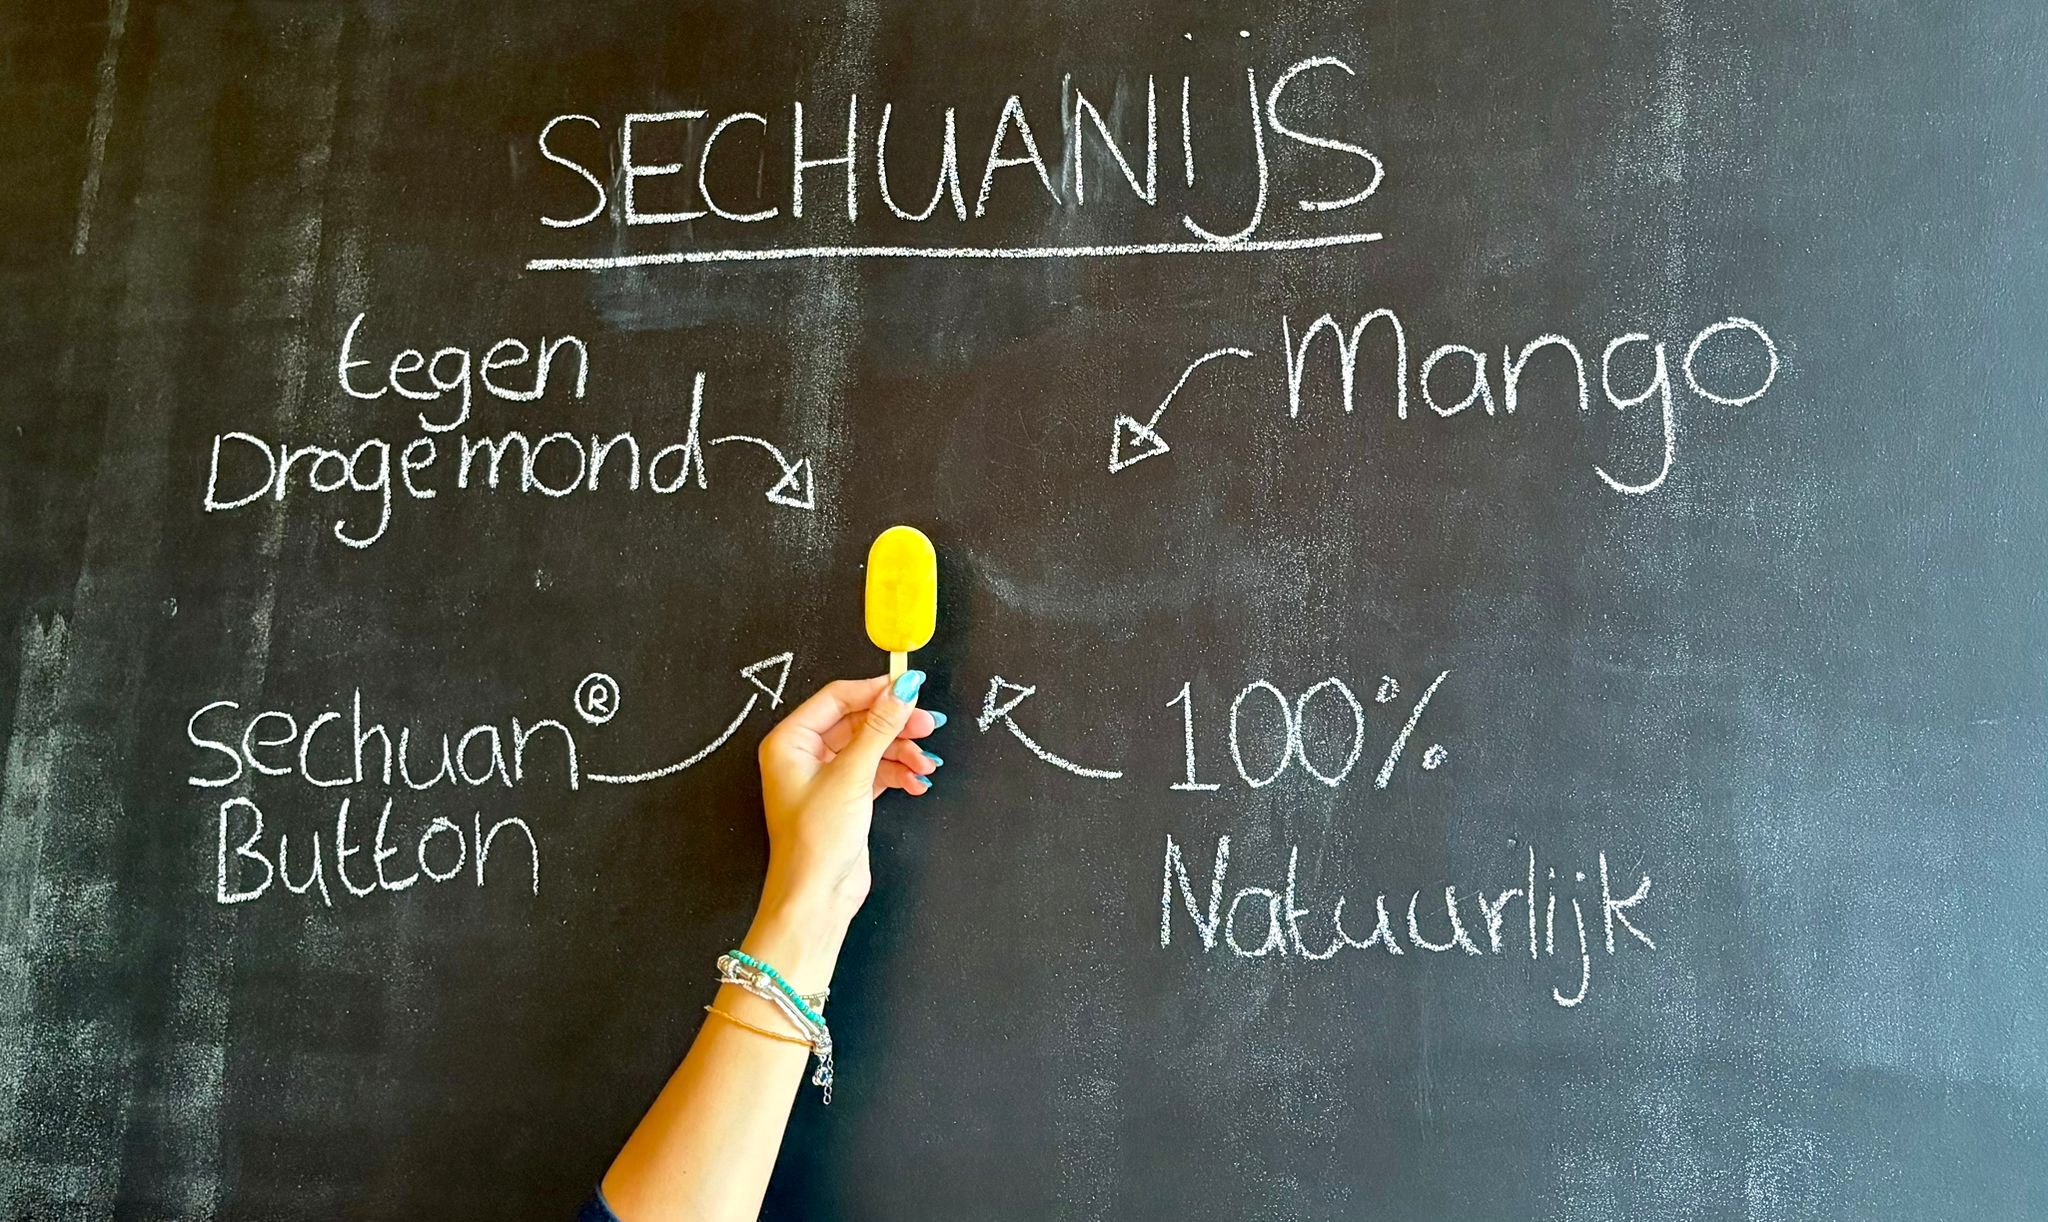 SECHUANIJS
tegen
Drogemond
Mango
Sechuan®
Button
100%
Natuurlijk